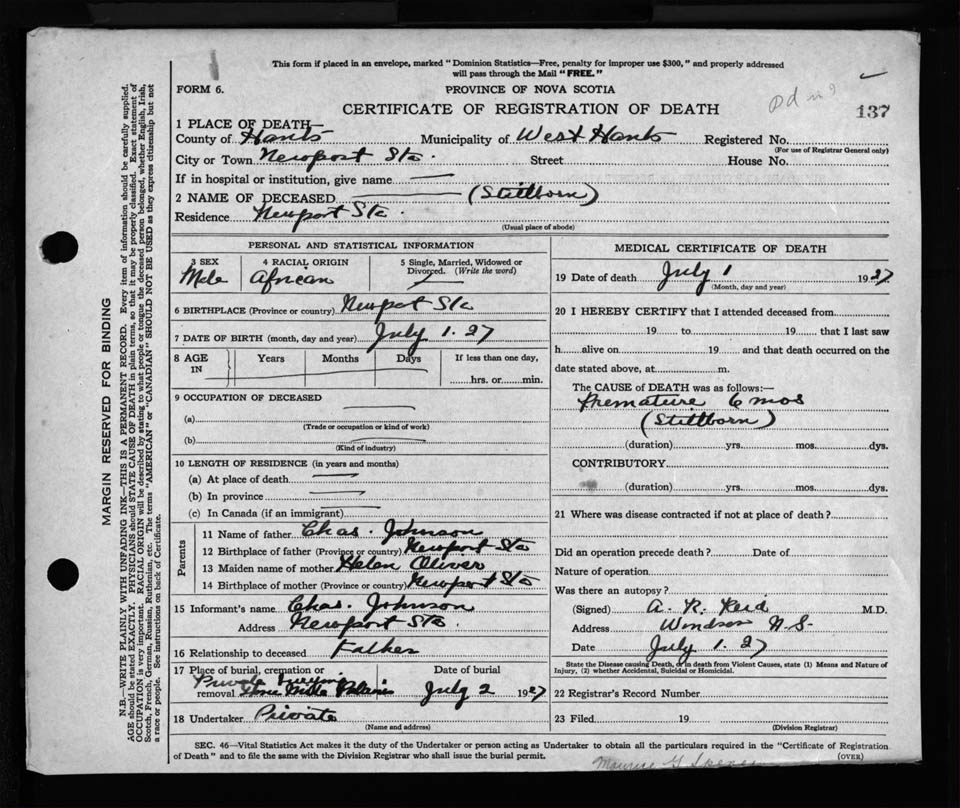 This form if placed in an envelope, marked "Dominion Statistics—Free, penalty for improper use $300," and properly addressed
will pass through the Mail "FREE."
FORM 6.
PROVINCE OF NOVA SCOTIA
CERTIFICATE OF REGISTRATION OF DEATH
137
1 PLACE OF DEATH—
County of Hants Municipality of West Hants Registered No.
(For use of Registrar General only)
City or Town Newport Sta. Street House No.
If in hospital or institution, give name —
2 NAME OF DECEASED — (Stillborn)
Residence Newport Sta.
(Usual place of abode)
PERSONAL AND STATISTICAL INFORMATION
3 SEX 4 RACIAL ORIGIN 5 Single, Married, Widowed or
Divorced. (Write the word)
Male African
6 BIRTHPLACE (Province or country) Newport Sta
7 DATE OF BIRTH (month, day and year) July 1. 27
8 AGE IN Years Months Days If less than one day,
hrs. or min.
9 OCCUPATION OF DECEASED
(a)
(Trade or occupation or kind of work)
(b)
(Kind of industry)
10 LENGTH OF RESIDENCE (in years and months)
(a) At place of death
(b) In province
(c) In Canada (if an immigrant)
Parents
11 Name of father Chas. Johnson
12 Birthplace of father (Province or country) Newport Sta
13 Maiden name of mother Helen Oliver
14 Birthplace of mother (Province or country) Newport Sta
15 Informant's name Chas. Johnson
Address Newport Sta.
16 Relationship to deceased Father
17 Place of burial, cremation or Date of burial
Private
removal Three Mile Plains July 2 1927
18 Undertaker Private
(Name and address)
MEDICAL CERTIFICATE OF DEATH
19 Date of death July 1 1927
(Month, day and year)
20 I HEREBY CERTIFY that I attended deceased from
19 to 19 that I last saw
h alive on 19 and that death occurred on the
date stated above, at m.
The CAUSE of DEATH was as follows:—
Premature 6 mos
(Stillborn)
(duration) yrs. mos. dys.
CONTRIBUTORY
(duration) yrs. mos. dys.
21 Where was disease contracted if not at place of death?
Did an operation precede death? Date of
Nature of operation
Was there an autopsy?
(Signed) A. R. Reid M.D.
Address Windsor N.S.
Date July 1. 27
State the Disease causing Death, or in death from Violent Causes, state (1) Means and Nature of
Injury, (2) whether Accidental, Suicidal or Homicidal.
22 Registrar's Record Number
23 Filed 19
(Division Registrar)
SEC. 46—Vital Statistics Act makes it the duty of the Undertaker or person acting as Undertaker to obtain all the particulars required in the "Certificate of Registration
of Death" and to file the same with the Division Registrar who shall issue the burial permit.
(OVER)
MARGIN RESERVED FOR BINDING
N.B.—WRITE PLAINLY WITH UNFADING INK—THIS IS A PERMANENT RECORD. Every item of information should be carefully supplied.
AGE should be stated EXACTLY. PHYSICIANS should STATE CAUSE OF DEATH in plain terms, so that it may be properly classified. Exact statement of
OCCUPATION is very important. RACIAL ORIGIN will be described by stating to what people or tongue the deceased person belonged, whether English, Irish,
Scotch, French, German, Russian, Ruthenian, etc. The terms "AMERICAN" or "CANADIAN" SHOULD NOT BE USED as they express citizenship but not
a race or people. See instructions on back of Certificate.